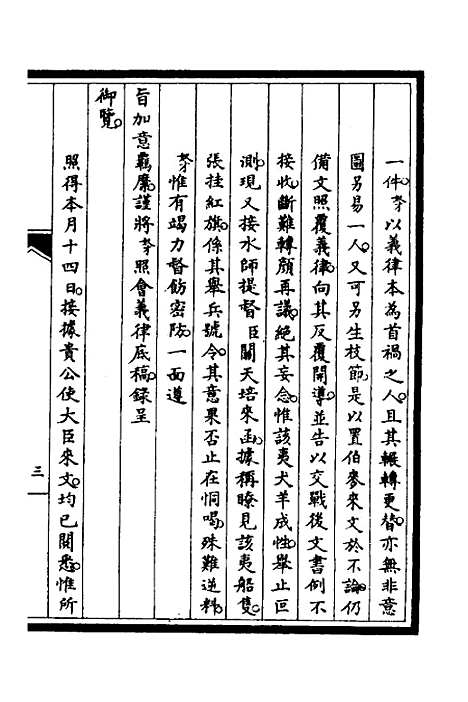 一件。奴才以義律本為首禍之人。且其輾轉更替。亦無非意
圖另易一人。又可另生枝節。是以置伯麥來文於不論。仍
備文照覆義律。向其反覆開導。並告以交戰後文書例不
接收。斷難轉顏再議。絕其妄念。惟該夷犬羊成性。舉止叵
測。現又接水師提督臣關天培來函。據稱瞭見該夷船隻。
張挂紅旗。係其舉兵號令。其意果否止在恫喝。殊難逆料。
奴才惟有竭力督飭密防。一面遵
旨加意羈縻。謹將奴才照會義律底稿。錄呈
御覽。
照得本月十四日。接據貴公使大臣來文。均已閱悉。惟所
三